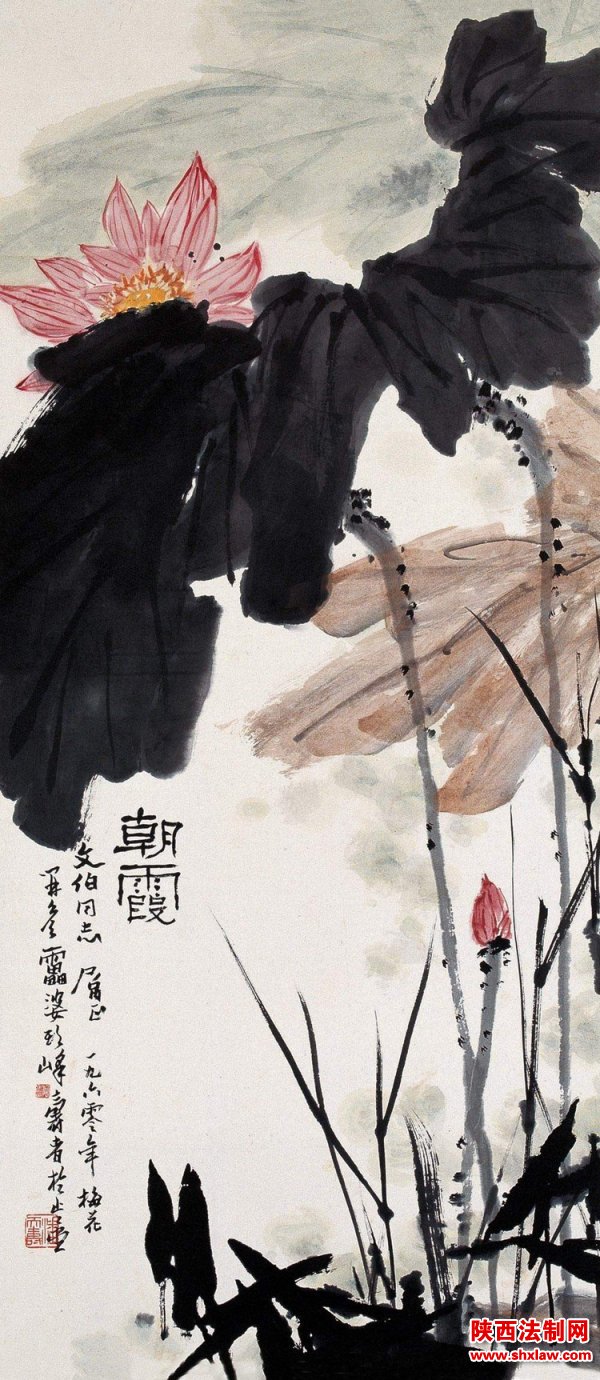 朝霞
文伯同志 属正 一九六零年 梅花
靁婆頭峰壽者於止
陕西法制网
www.shxlaw.com